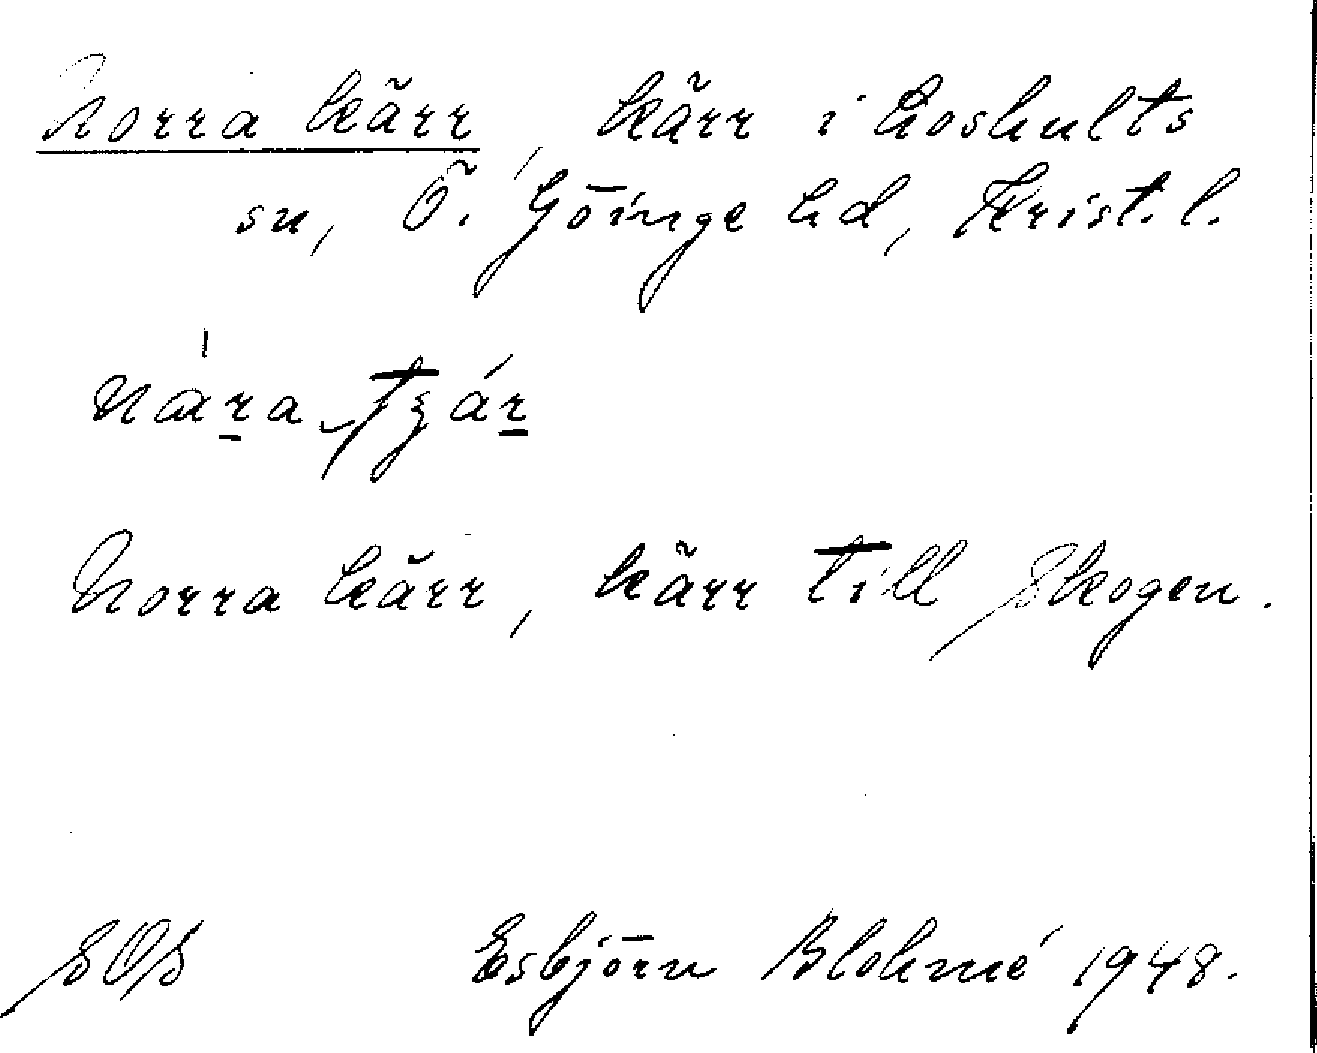 Norra kärr, kärr i Loshults
sn, Ö. Göinge hd, Krist. l.
Norra kärr, kärr till Skogen.
SOS Esbjörn Blohmé 1948.